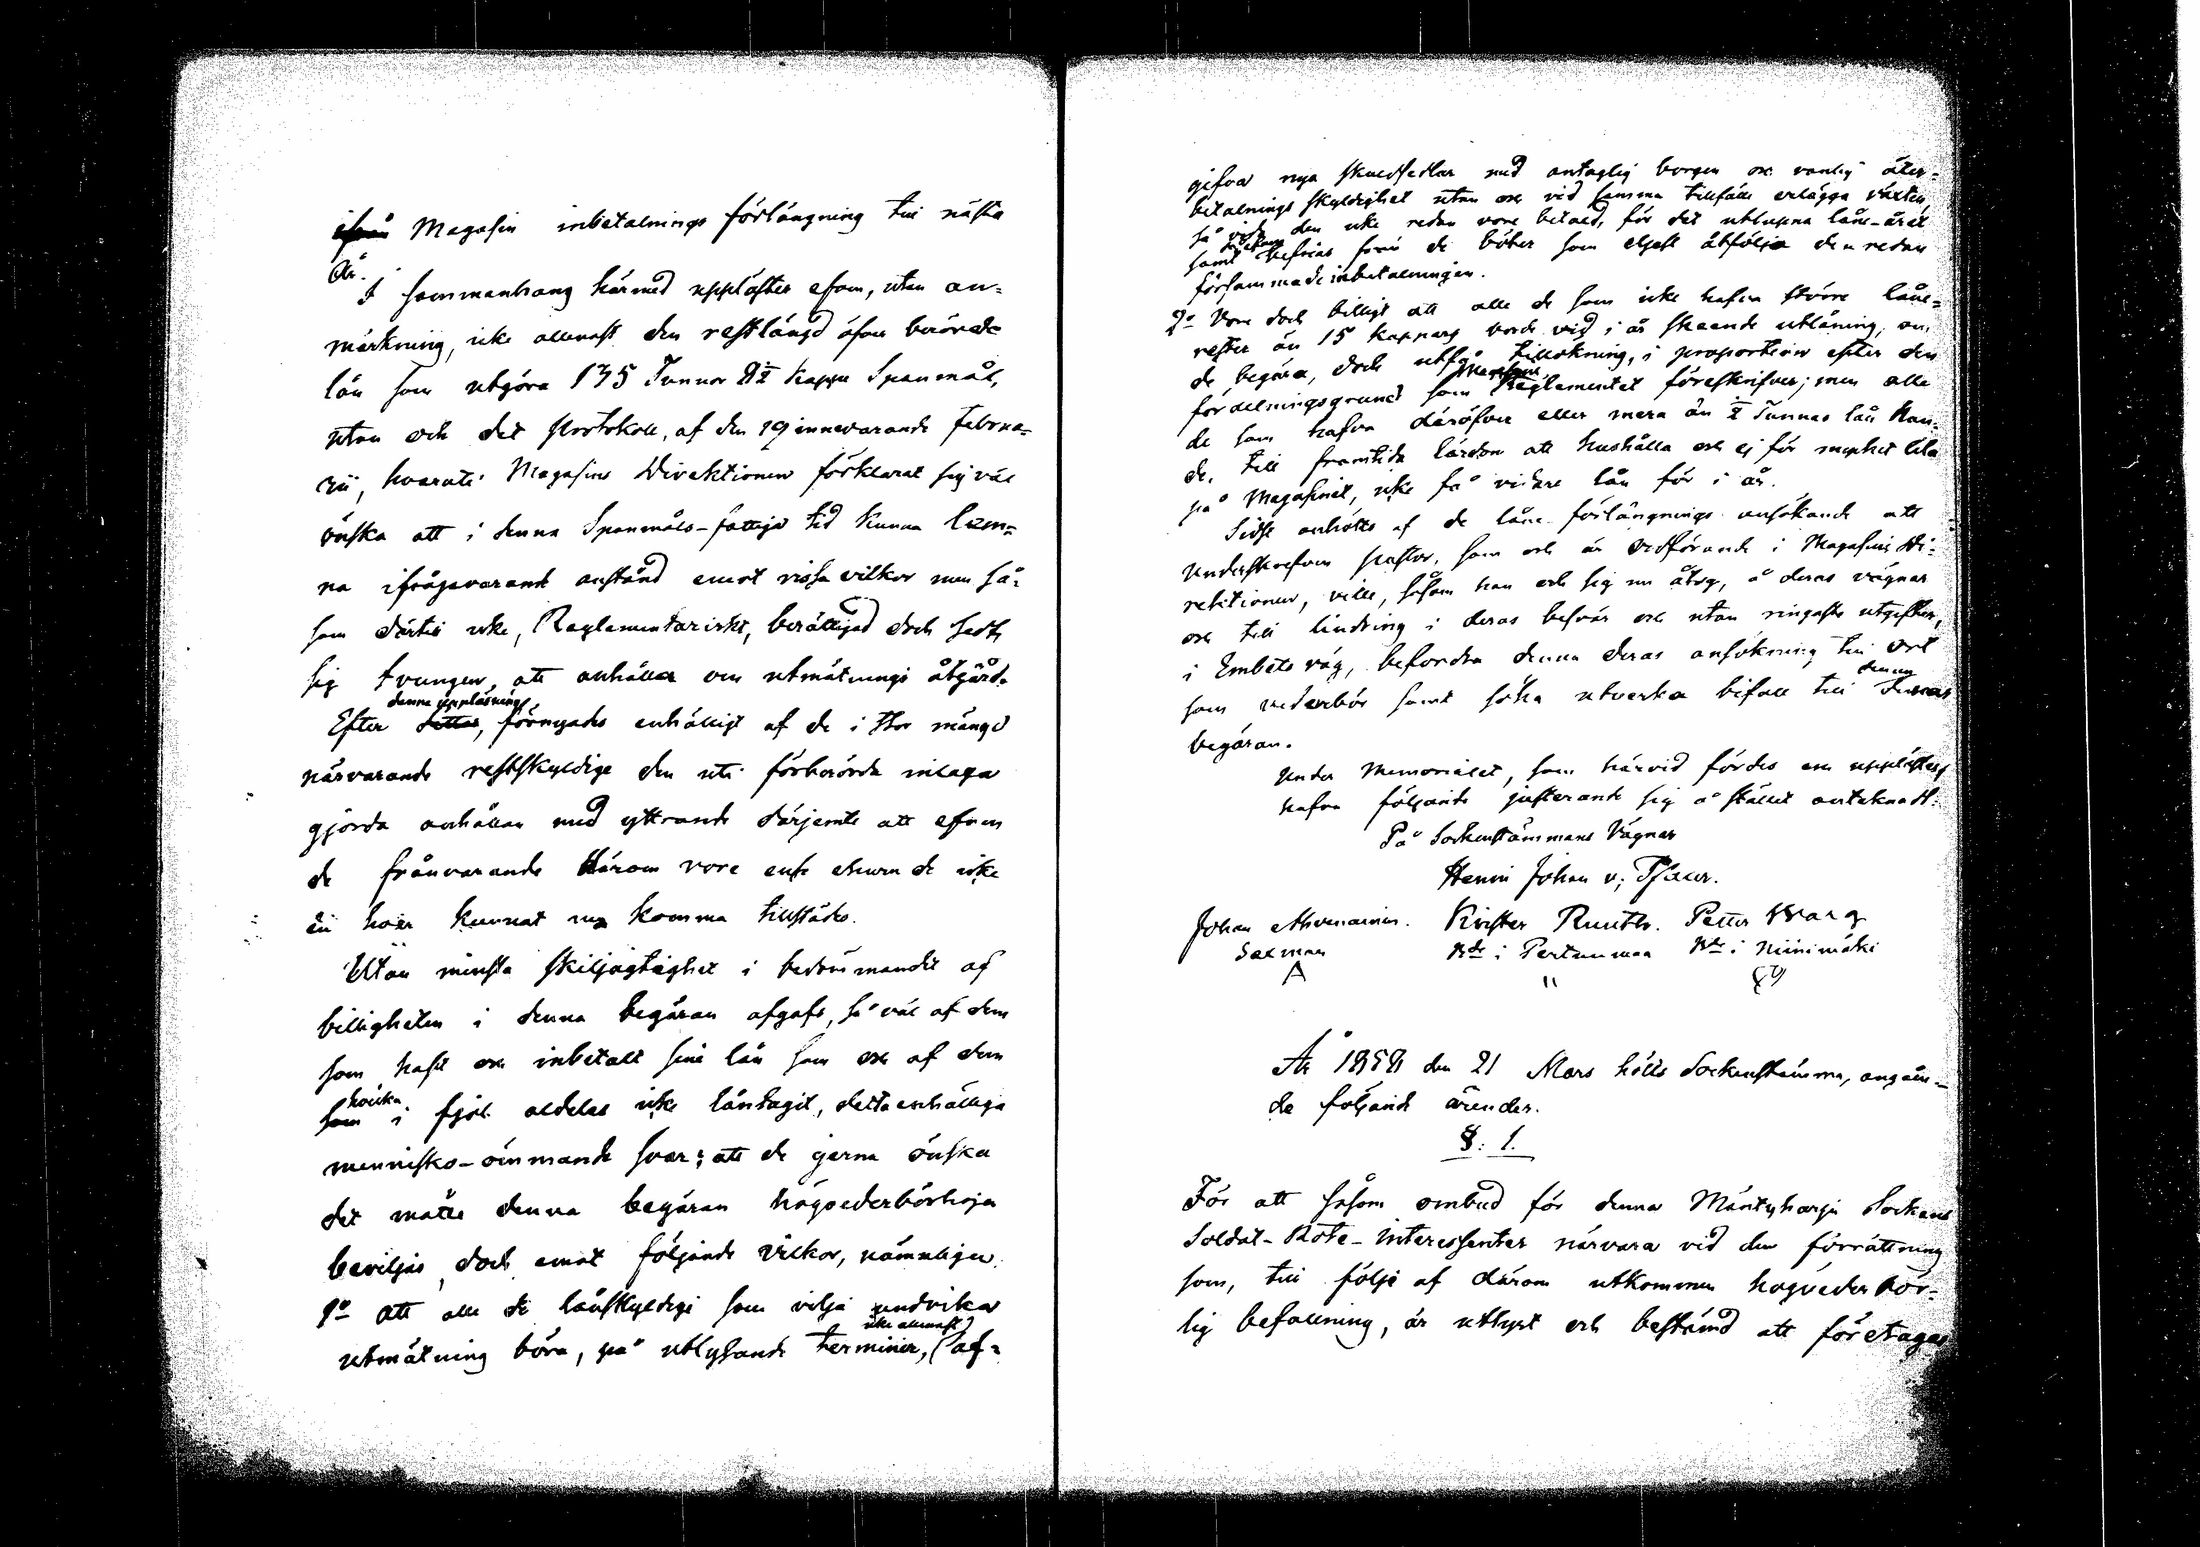 Magasin inbetalnings förlängning till nästa
år.
I sammanhang härmed upplästes efven, utan an-
märkning, icke allenast den restlängd öfver berörde
lån som utgöra 135 Tunnor Kappa Spanmål,
utan och det Protokoll, af den 19 innevarande Februa-
rii, hvaruti Magasins Direktionen förklarat sig väl
önska att i denna Spanmåls-fattiga tid kunna läm-
na ifrågavarande anstånd emot vissa vilkor men så-
som därtill icke, Reglementariskt, berättigad dock sedt
sig tvungen, att anhålla om utmätnings åtgärd.
Efter denna uppläsning, förnyades enhälligt af de i stor mängd
närvarande restskyldige den uti förberörda inlaga
gjorda anhållan med yttrande därjemte att efven
de frånvarande härom vore ense ehuru de icke
nu kunnat komma tillstädes.
Utan minsta skiljagtighet i bedömmandet af
billigheten i denna begäran afgafs, så väl af dem
som haft och inbetalt sine lån som ock af dem
hvilka i fjol aldeles icke låntagit, detta enhälliga
mennisko-ömmande svar; att de gerna önska
det måtte denna begäran högvederbörliga
beviljas, dock emot följande vilkor, nämnligen
1o att alle de lånskyldige som vilja undvika
utmätning böra, på utlysande terminer, (icke allenast) af-
gifva nya skuldsedlar med antaglig borgen och vanlig åter-
betalnings skyldighet utan ock vid samma tillfälle erlägga växten,
så vida den icke redan vore betald, för det utlupna låne-året
samt befrias från de böter som eljest åtfölja den redan
försummade inbetalningen.
2o Vore dock billigt att alle de som icke hafva större låne-
rester än 15 kappars borde vid i år skeende utlåning, om
de begära, dock utfå tillökning, i proportion efter den
fördelningsgrund som Reglementet föreskrifver; men alle
de som hafva däröfver eller mera än ½ Tunnas lån kun-
de, till framtida lärdom att hushålla och ej för mycket lita
på Magasinet, icke få vidare lån för i år.
Sidst anhölts af de låne-förlängnings ansökande att
Underskrefven pastor, som och är ordförande i Magasins Di-
rektionen, ville, såsom han och sig nu åtog, å deras vägnar
och till lindring i deras besvär och utan ringaste utgifter,
i Embets väg, befordra denna deras ansökning till ort
som vederbör samt söka utverka bifall till denna
begäran.
Under Memorialet, som härvid fördes och upplästes
hafva följande justerande sig å stället antecknadt:
På Sockenstämmans Vägnar
Henric Johan v; Pfaler.
Johan Ahvenainen. Krister Ruuth. Petter Warg
Salmen Bde i Pertunmaa Bde i Niinimäki
År 1858 den 21 Mars hölls Sockenstämma, angåen-
de följande ärender.
§: 1.
För att såsom ombud för denna Mäntyharju Sockens
Soldat-Rote-Interessenter närvara vid den förrättning
som, till följe af därom utkommen högvederbör-
lig befallning, är utlyst och bestämd att företagas